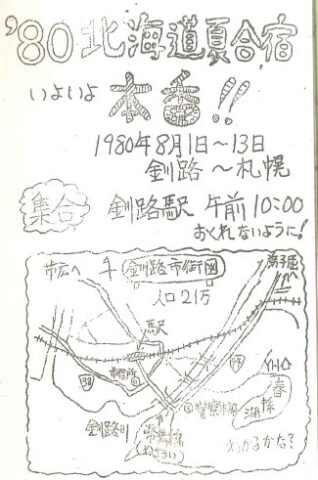 '80 北海道夏合宿
いよいよ
本番!!
1980年8月1日~13日
釧路~札幌
集合 釧路駅 午前10:00
おくれないように!
帯広へ
釧路市街図
弟子屈へ
人口21万
駅
市役所
38
44
YHO
春採湖
警察本部
釧路川
幣舞橋
(ぬさまい)
わかるかな?